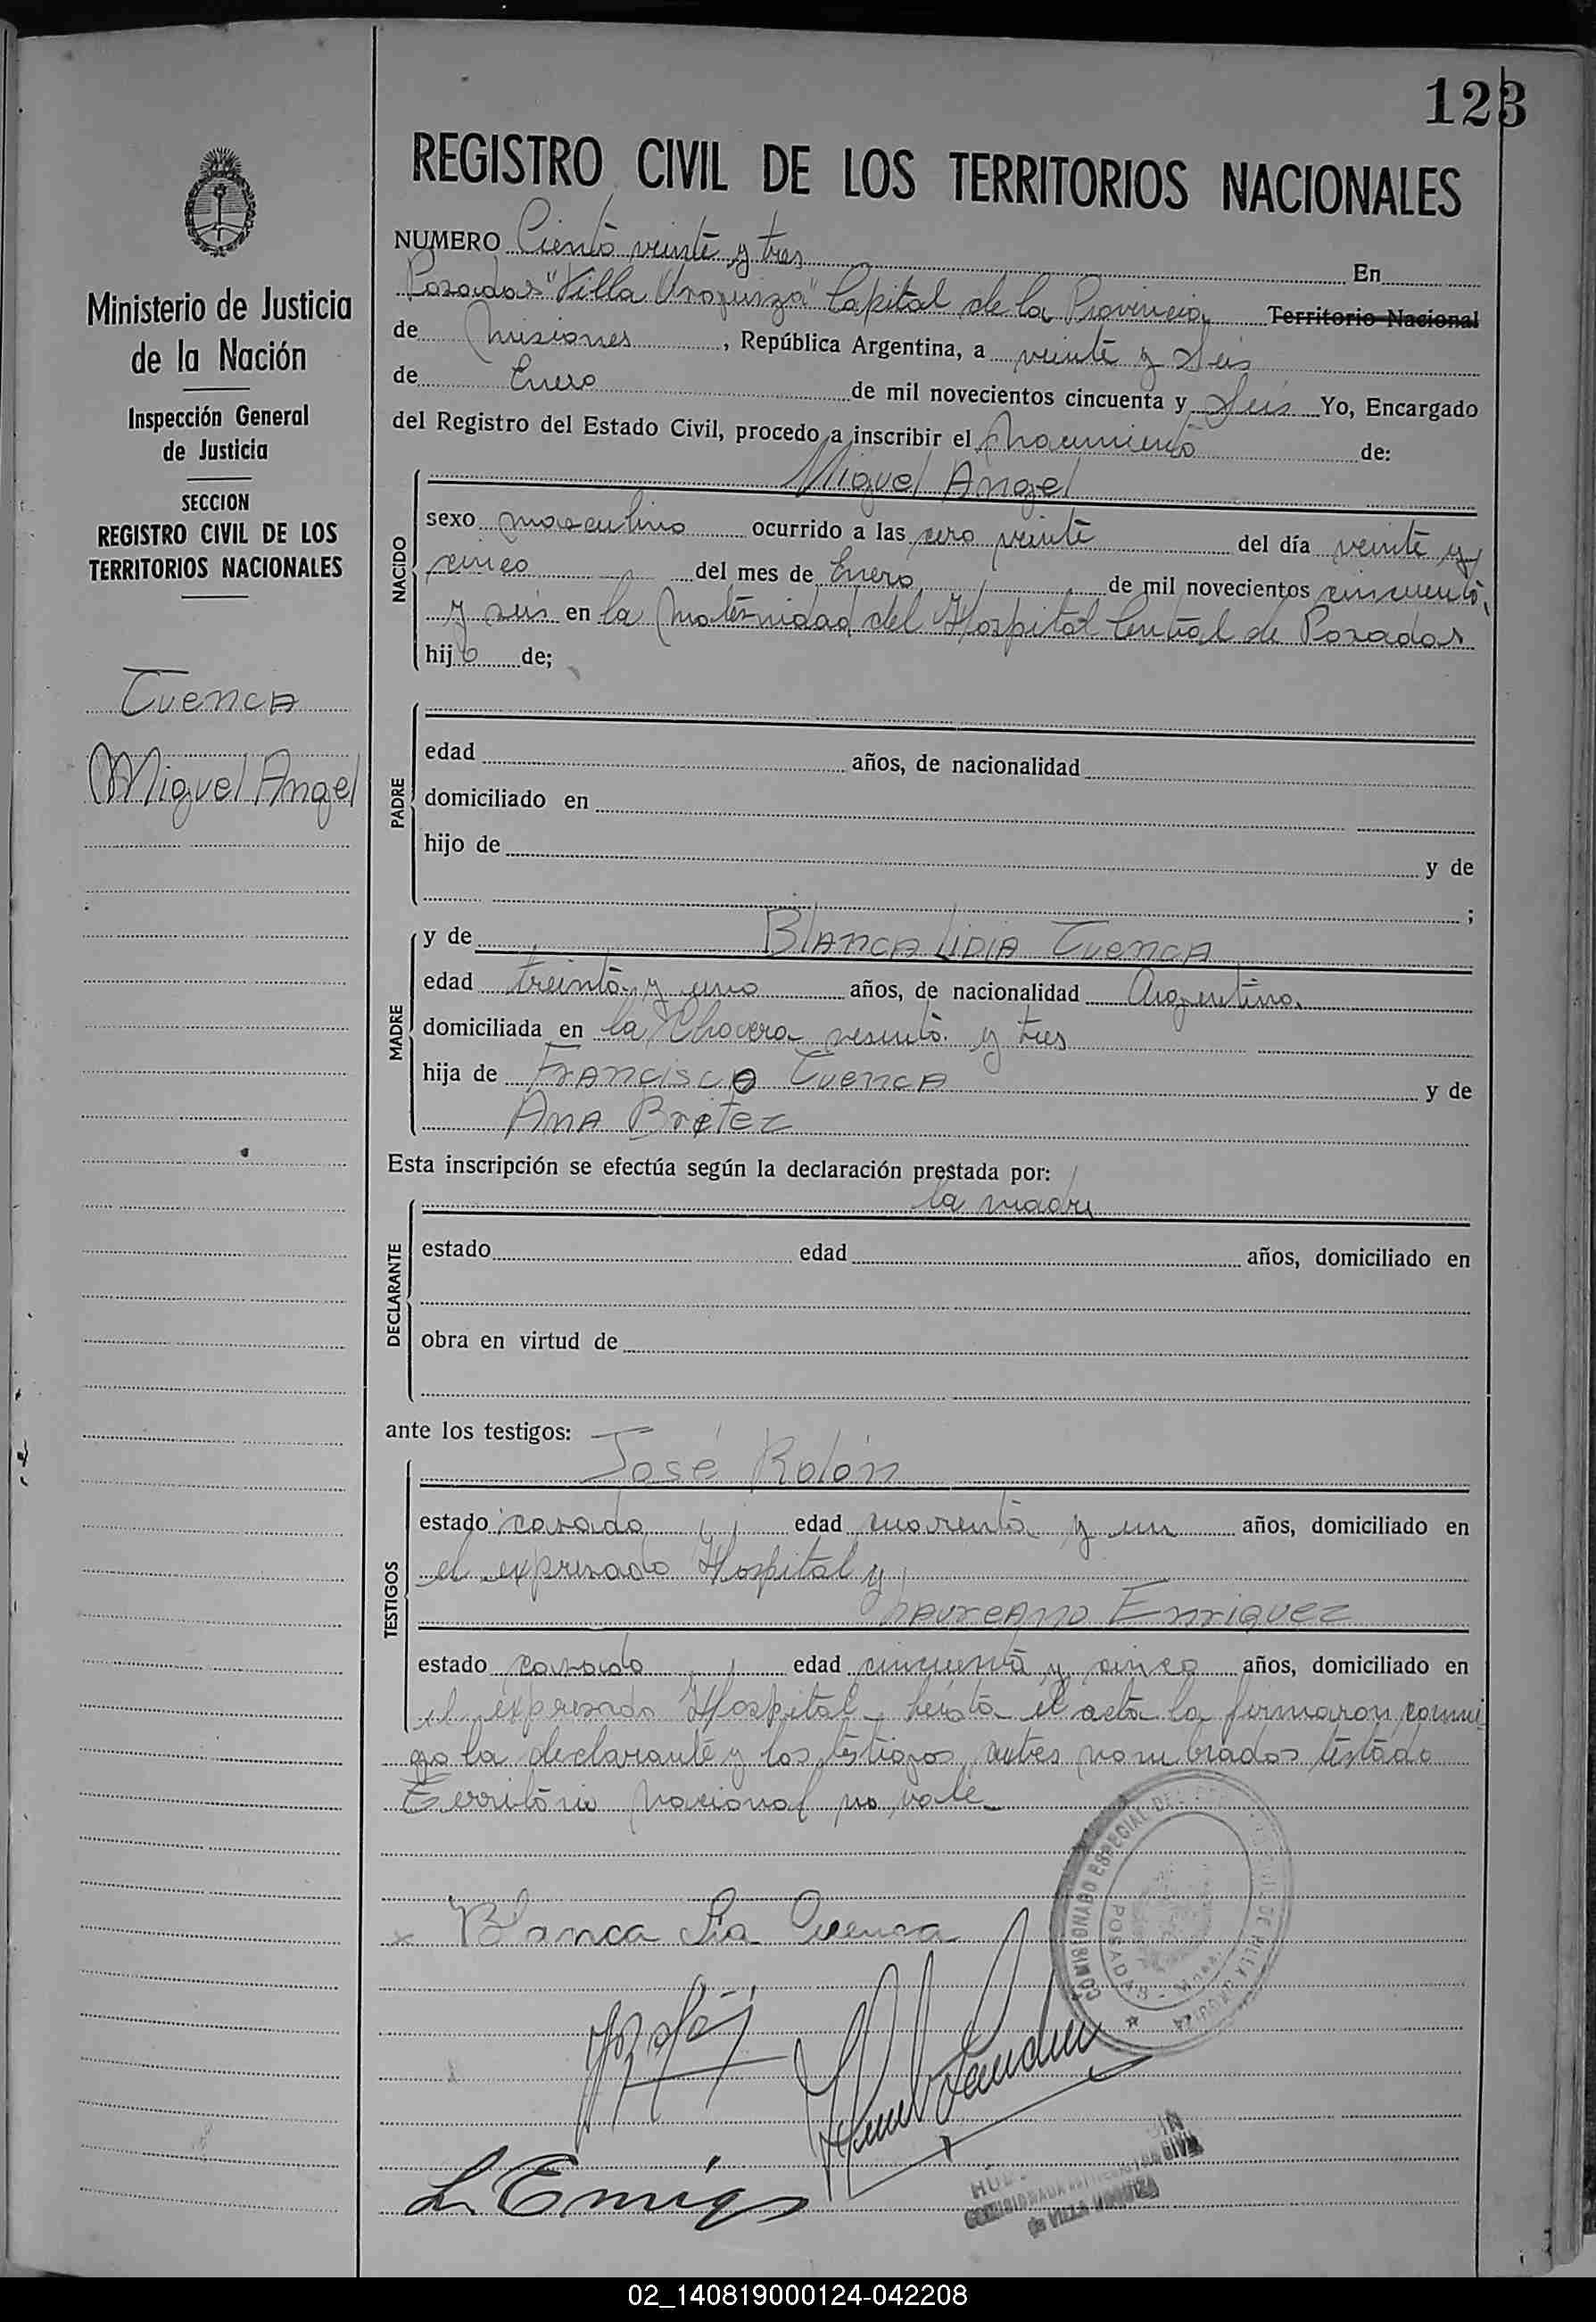 123
REGISTRO CIVIL DE LOS TERRITORIOS NACIONALES
Ministerio de Justicia
de la Nación
Inspección General
de Justicia
SECCION
REGISTRO CIVIL DE LOS
TERRITORIOS NACIONALES
Cuenca
Miguel Angel
NUMERO Ciento veinte y tres En
Posadas "Villa Urquiza" Capital de la Provincia Territorio Nacional
de Misiones, República Argentina, a veinte y seis
de Enero de mil novecientos cincuenta y Seis Yo, Encargado
del Registro del Estado Civil, procedo a inscribir el Nacimiento de:
NACIDO
Miguel Angel
sexo masculino ocurrido a las cero veinte del día veinte y
cinco del mes de Enero de mil novecientos cincuenta
y seis en la Maternidad del Hospital Central de Posadas
hijo de;
PADRE
edad años, de nacionalidad
domiciliado en
hijo de y de
;
MADRE
y de Blanca Lidia Cuenca
edad treinta y uno años, de nacionalidad Argentina
domiciliada en la Chacra sesenta y tres
hija de Francisco Cuenca y de
Ana Britez
Esta inscripción se efectúa según la declaración prestada por:
DECLARANTE
la madre
estado edad años, domiciliado en
obra en virtud de
ante los testigos:
TESTIGOS
José Rolón
estado casado edad cuarenta y un años, domiciliado en
el expresado Hospital y
Laureano Enriquez
estado casado edad cincuenta y cinco años, domiciliado en
el expresado Hospital leida el acta la firmaron conmi
go la declarante y los testigos antes nombrados testado
Territorio Nacional no vale
COMISIONADO ESPECIAL DEL
POSADAS - Mnes.
x Blanca Lia Cuenca
de VILLA URQUIZA
02_140819000124-042208